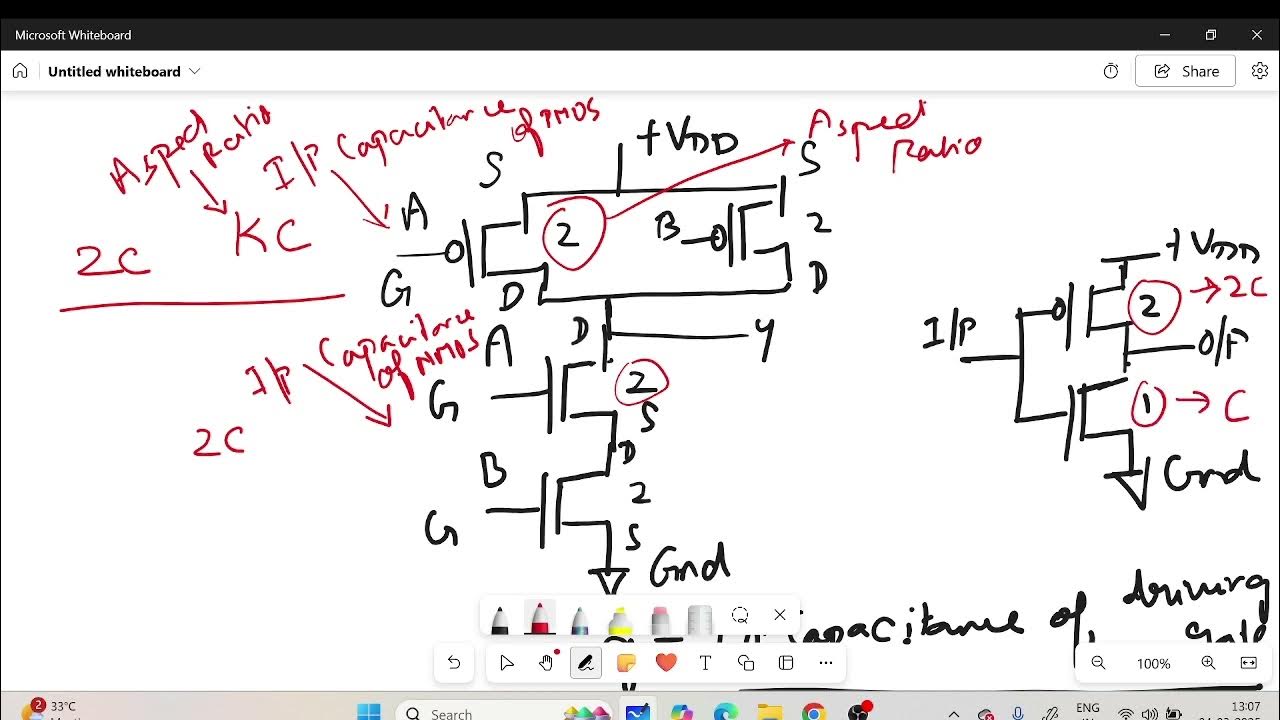 Microsoft Whiteboard
Untitled whiteboard
Share
Aspect Ratio
I/P Capacitance of PMOS
KC
2C
+VDD
Aspect Ratio
S
S
A
2
B
2
G
D
D
I/P Capacitance of NMOS
2C
D
Y
A
G
2
S
D
B
2
G
S
Gnd
+VDD
2 → 2C
I/P
O/P
1 → C
Gnd
Capacitance of driving
100%
2
33°C
Search
ENG
13:07